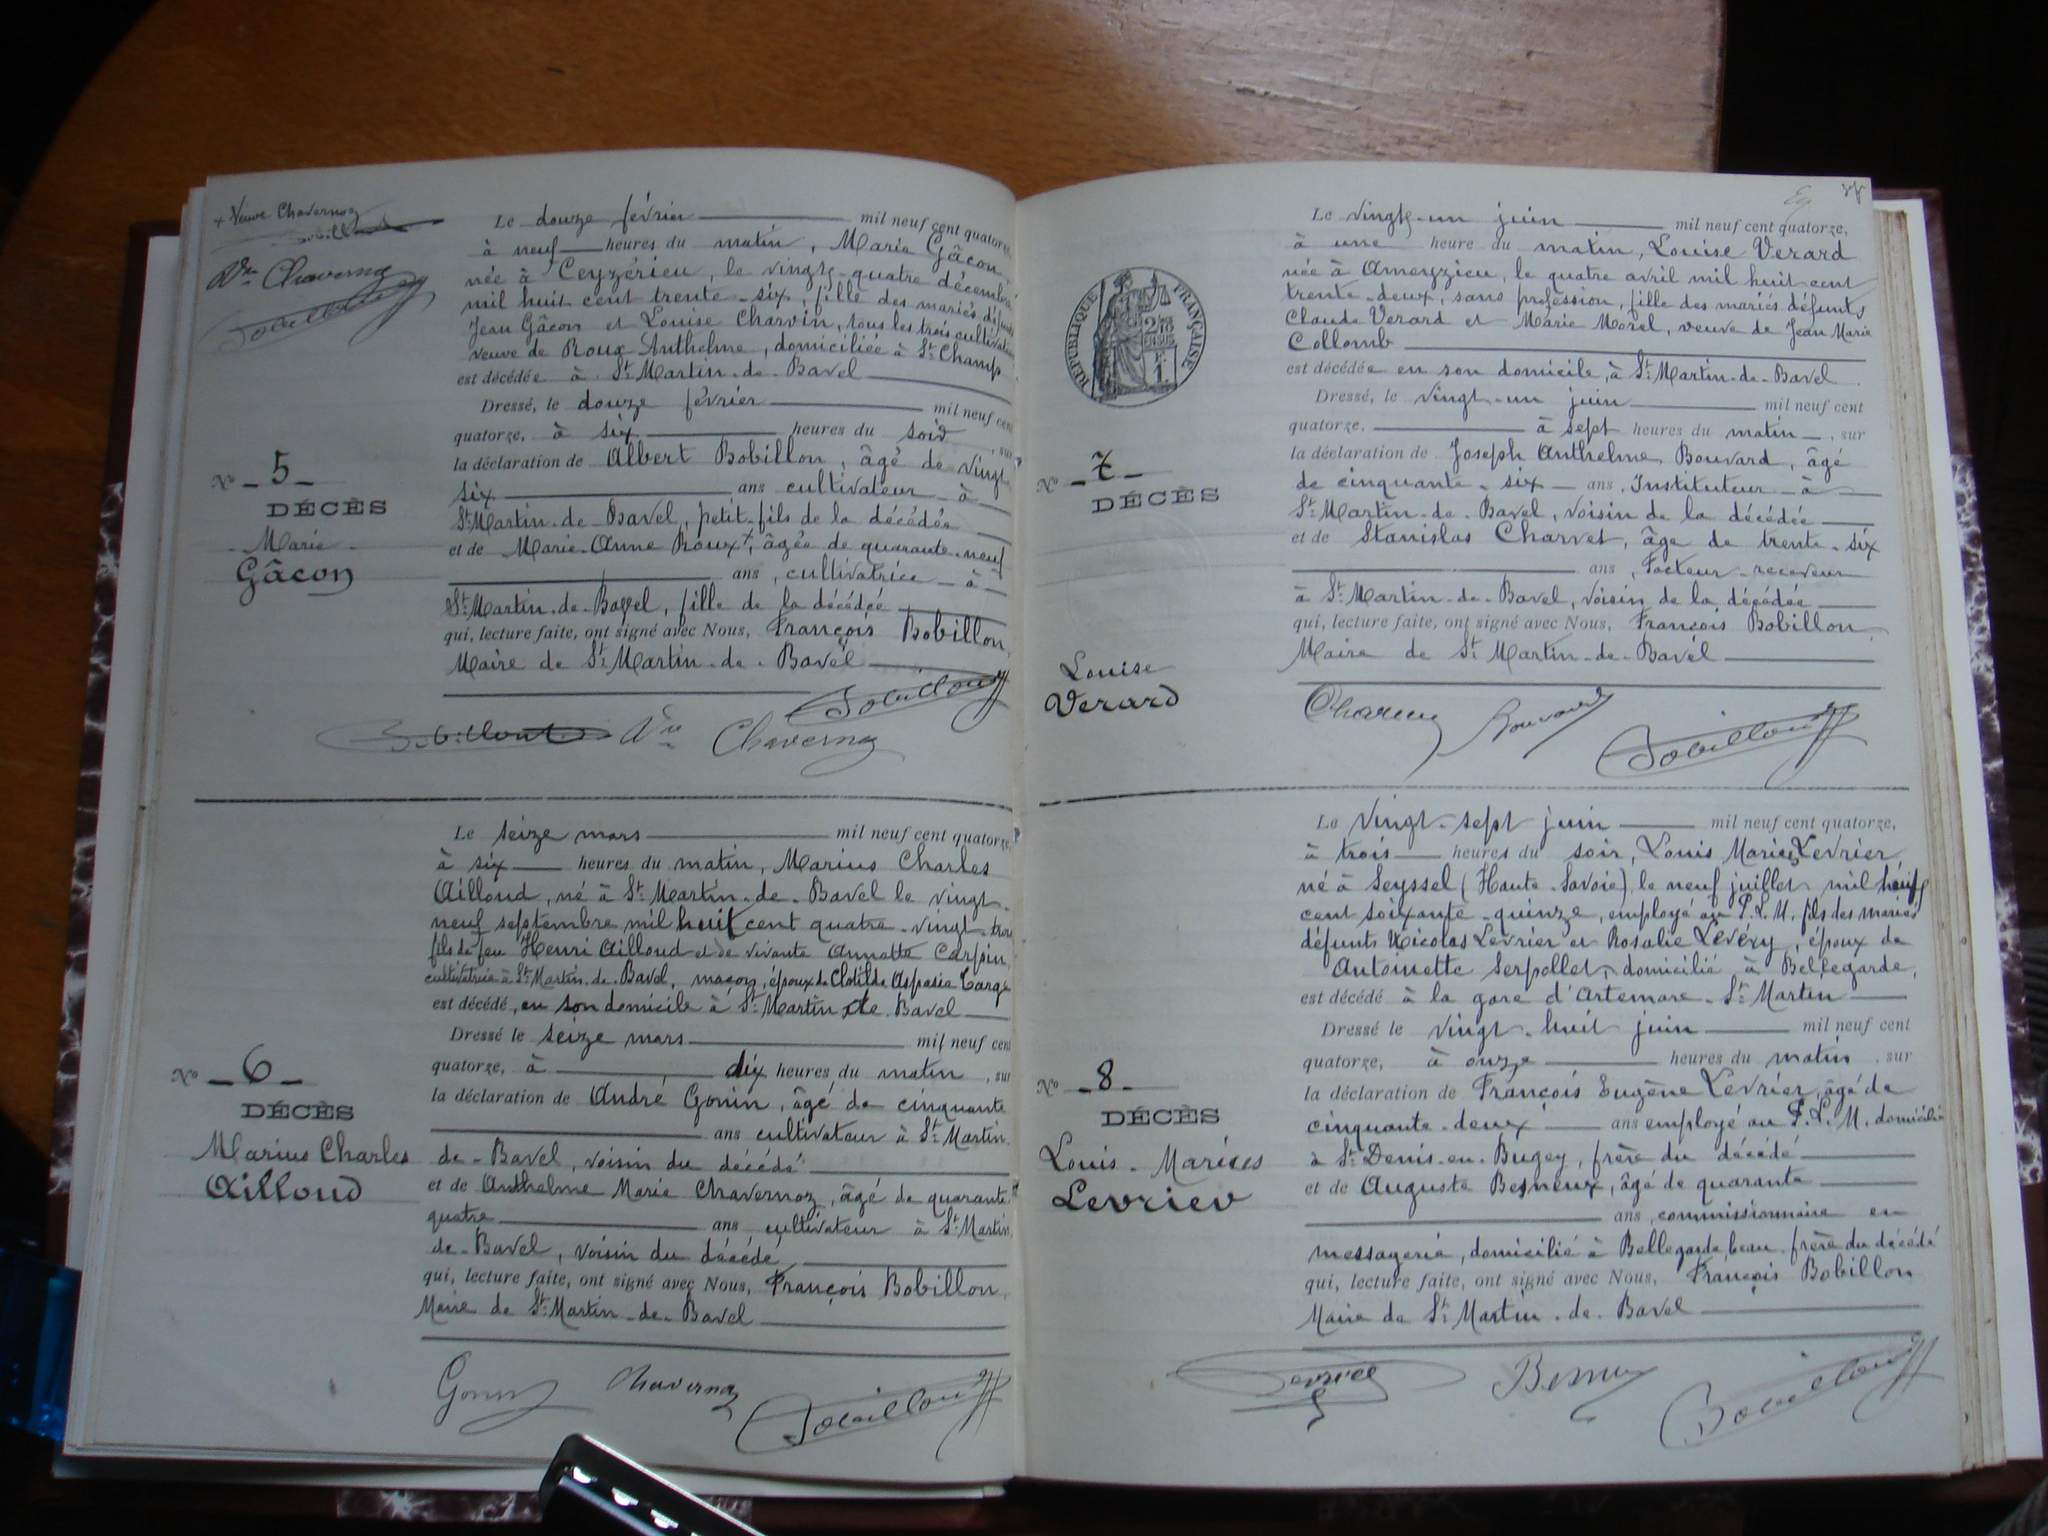 + Veuve Chavernoz
Vve Chavernoz
Bobillon
Le douze février mil neuf cent quatorze,
à neuf heures du matin, Marie Gâcon,
née à Ceyzérieu, le vingt-quatre décembre
mil huit cent trente-six, fille des mariés défunts
Jean Gâcon et Louise Charvin, tous les trois cultivateurs
veuve de Roux Anthelme, domiciliée à St Champ
est décédée à St Martin-de-Bavel
Dressé, le douze février mil neuf cent
quatorze, à six heures du soir, sur
la déclaration de Albert Bobillon, âgé de vingt
six ans cultivateur à
St Martin-de-Bavel, petit-fils de la décédée
et de Marie-Anne Roux +, âgée de quarante-neuf
ans, cultivatrice à
St Martin-de-Bavel, fille de la décédée
qui, lecture faite, ont signé avec Nous, François Bobillon,
Maire de St Martin-de-Bavel
Bobillon
Vve Chavernoz
Bobillon
No 5
DÉCÈS
Marie
Gâcon
Le seize mars mil neuf cent quatorze,
à six heures du matin, Marius Charles
Ailloud, né à St Martin-de-Bavel le vingt-
neuf septembre mil huit cent quatre-vingt-trois
fils de feu Henri Ailloud et de vivante Annette Carpin,
cultivatrice à St Martin-de-Bavel, maçon, époux de Clotilde Aspasie
est décédé, en son domicile à St Martin de Bavel
Dressé le seize mars mil neuf cent
quatorze, à dix heures du matin, sur
la déclaration de André Gonin, âgé de cinquante
ans cultivateur à St Martin-
de-Bavel, voisin du décédé
et de Anthelme Marie Chavernoz, âgé de quarante-
quatre ans cultivateur à St Martin
de-Bavel, voisin du décédé
qui, lecture faite, ont signé avec Nous, François Bobillon,
Maire de St Martin-de-Bavel
Gonin Chavernoz Bobillon
No 6
DÉCÈS
Marius Charles
Ailloud
RÉPUBLIQUE FRANÇAISE
Le vingt-un juin mil neuf cent quatorze,
à une heure du matin, Louise Verard
née à Ameyzieu, le quatre avril mil huit cent
trente-deux, sans profession, fille des mariés défunts
Claude Verard et Marie Morel, veuve de Jean Marie
Collomb
est décédée en son domicile, à St Martin-de-Bavel
Dressé, le vingt-un juin mil neuf cent
quatorze, à sept heures du matin, sur
la déclaration de Joseph Anthelme Bouvard, âgé
de cinquante-six ans, Instituteur à
St Martin-de-Bavel, voisin de la décédée
et de Stanislas Charvet, âge de trente-six
ans, Facteur-receveur
à St Martin-de-Bavel, voisin de la décédée
qui, lecture faite, ont signé avec Nous, François Bobillon,
Maire de St Martin-de-Bavel
Charvet Bouvard Bobillon
No 7
DÉCÈS
Louise
Verard
Le vingt-sept juin mil neuf cent quatorze,
à trois heures du soir, Louis Marius Levrier,
né à Seyssel (Haute-Savoie), le neuf juillet mil huit
cent soixante-quinze, employé au P.L.M. fils des mariés
défunts Nicolas Levrier et Rosalie Levéry, époux de
Antoinette Serpollet, domicilié à Bellegarde,
est décédé à la gare d'Artemare-St Martin
Dressé le vingt-huit juin mil neuf cent
quatorze, à onze heures du matin, sur
la déclaration de François Eugène Levrier, âgé de
cinquante-deux ans employé au P.L.M. domicilié
à St Denis-en-Bugey, frère du décédé
et de Auguste Besneux, âgé de quarante
ans, commissionnaire en
messagerie, domicilié à Bellegarde, beau-frère du décédé
qui, lecture faite, ont signé avec Nous, François Bobillon
Maire de St Martin-de-Bavel
Levrier Besneux Bobillon
No 8
DÉCÈS
Louis-Marius
Levrier